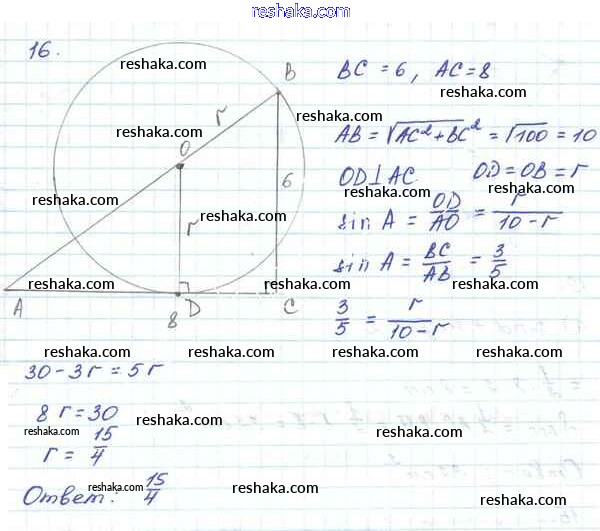 www.reshaka.com
16.
reshaka.com
B
BC = 6, AC = 8
reshaka.com
r
reshaka.com
reshaka.com
AB = √AC² + BC² = √100 = 10
O
reshaka.com
reshaka.com
OD ⊥ AC OD = OB = r
6
reshaka.com
r
reshaka.com
reshaka.com
sin A = OD/AO = r/(10 - r)
reshaka.com
sin A = BC/AB = 3/5
reshaka.com
reshaka.com
reshaka.com
A 8 D C
3/5 = r/(10 - r)
reshaka.com
reshaka.com
reshaka.com
30 - 3r = 5r
reshaka.com
8r = 30
reshaka.com
reshaka.com
reshaka.com
r = 15/4
reshaka.com
Ответ: 15/4
reshaka.com
reshaka.com